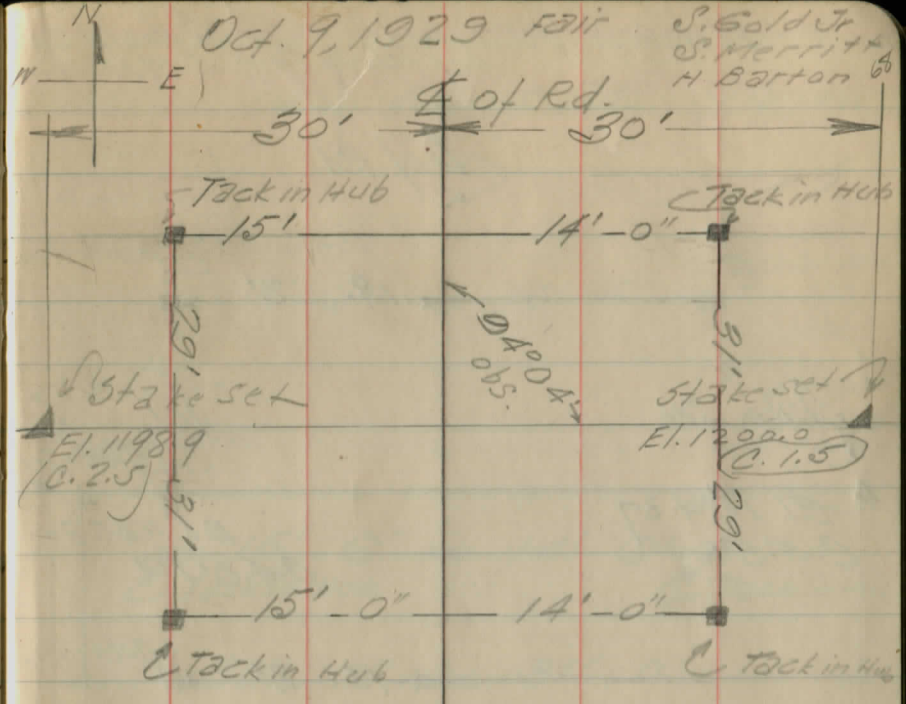 N
Oct. 9, 1929 Fair
S. Gold Jr.
S. Merritt
H Barton
68
W E
℄ of Rd.
30' 30'
Tack in Hub
Tack in Hub
15' 14' - 0"
29'
31'
94°04'
obs.
Stake set
Stake set
El. 1198.9
(C. 2.5)
El. 1200.0
C. 1.5
31'
29'
15' - 0" 14' - 0"
Tack in Hub
Tack in Hub